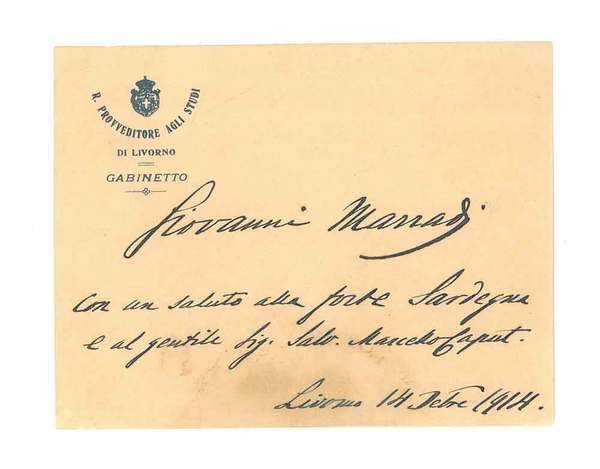 R. PROVVEDITORE AGLI STUDI
DI LIVORNO
GABINETTO
Giovanni Marradi
con un saluto alla forte Sardegna
e al gentile Sig. Salv. Marcello Caput.
Livorno 14 Dbre 1914.